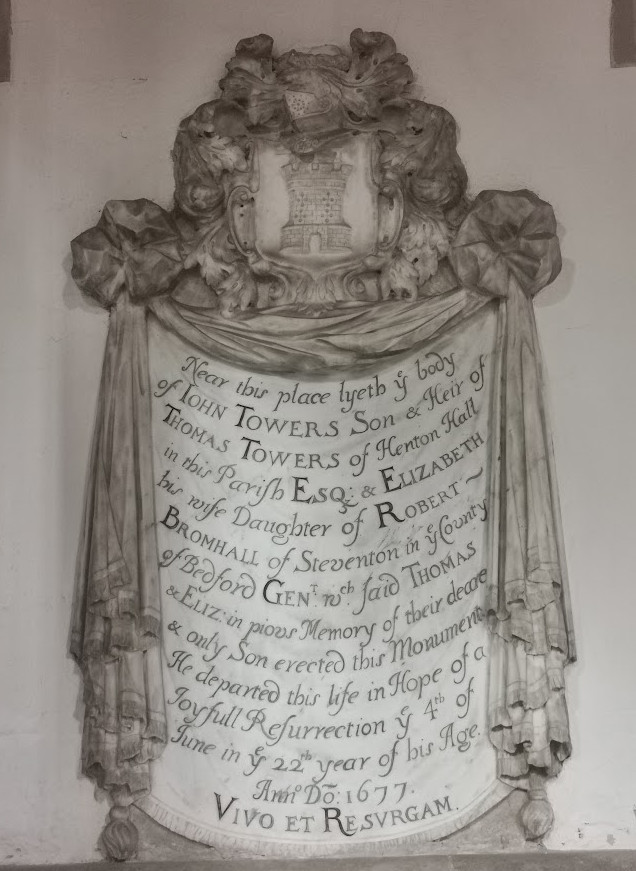 Near this place lyeth yͤ body
of IOHN TOWERS Son & Heir of
THOMAS TOWERS of Henton Hall
in this Pariſh ESQ: & ELIZABETH
his wife Daughter of ROBERT ~
BROMHALL of Steventon in yͤ County
of Bedford GENᵀ: wᶜʰ ſaid THOMAS
& ELIZ: in pious Memory of their deare
& only Son erected this Monument
He departed this life in Hope of a
Joyfull Reſurrection yͤ 4ᵗʰ of
June in yͤ 22ᵗʰ year of his Age.
Annᵒ Dō: 1677.
VIVO ET RESVRGAM.